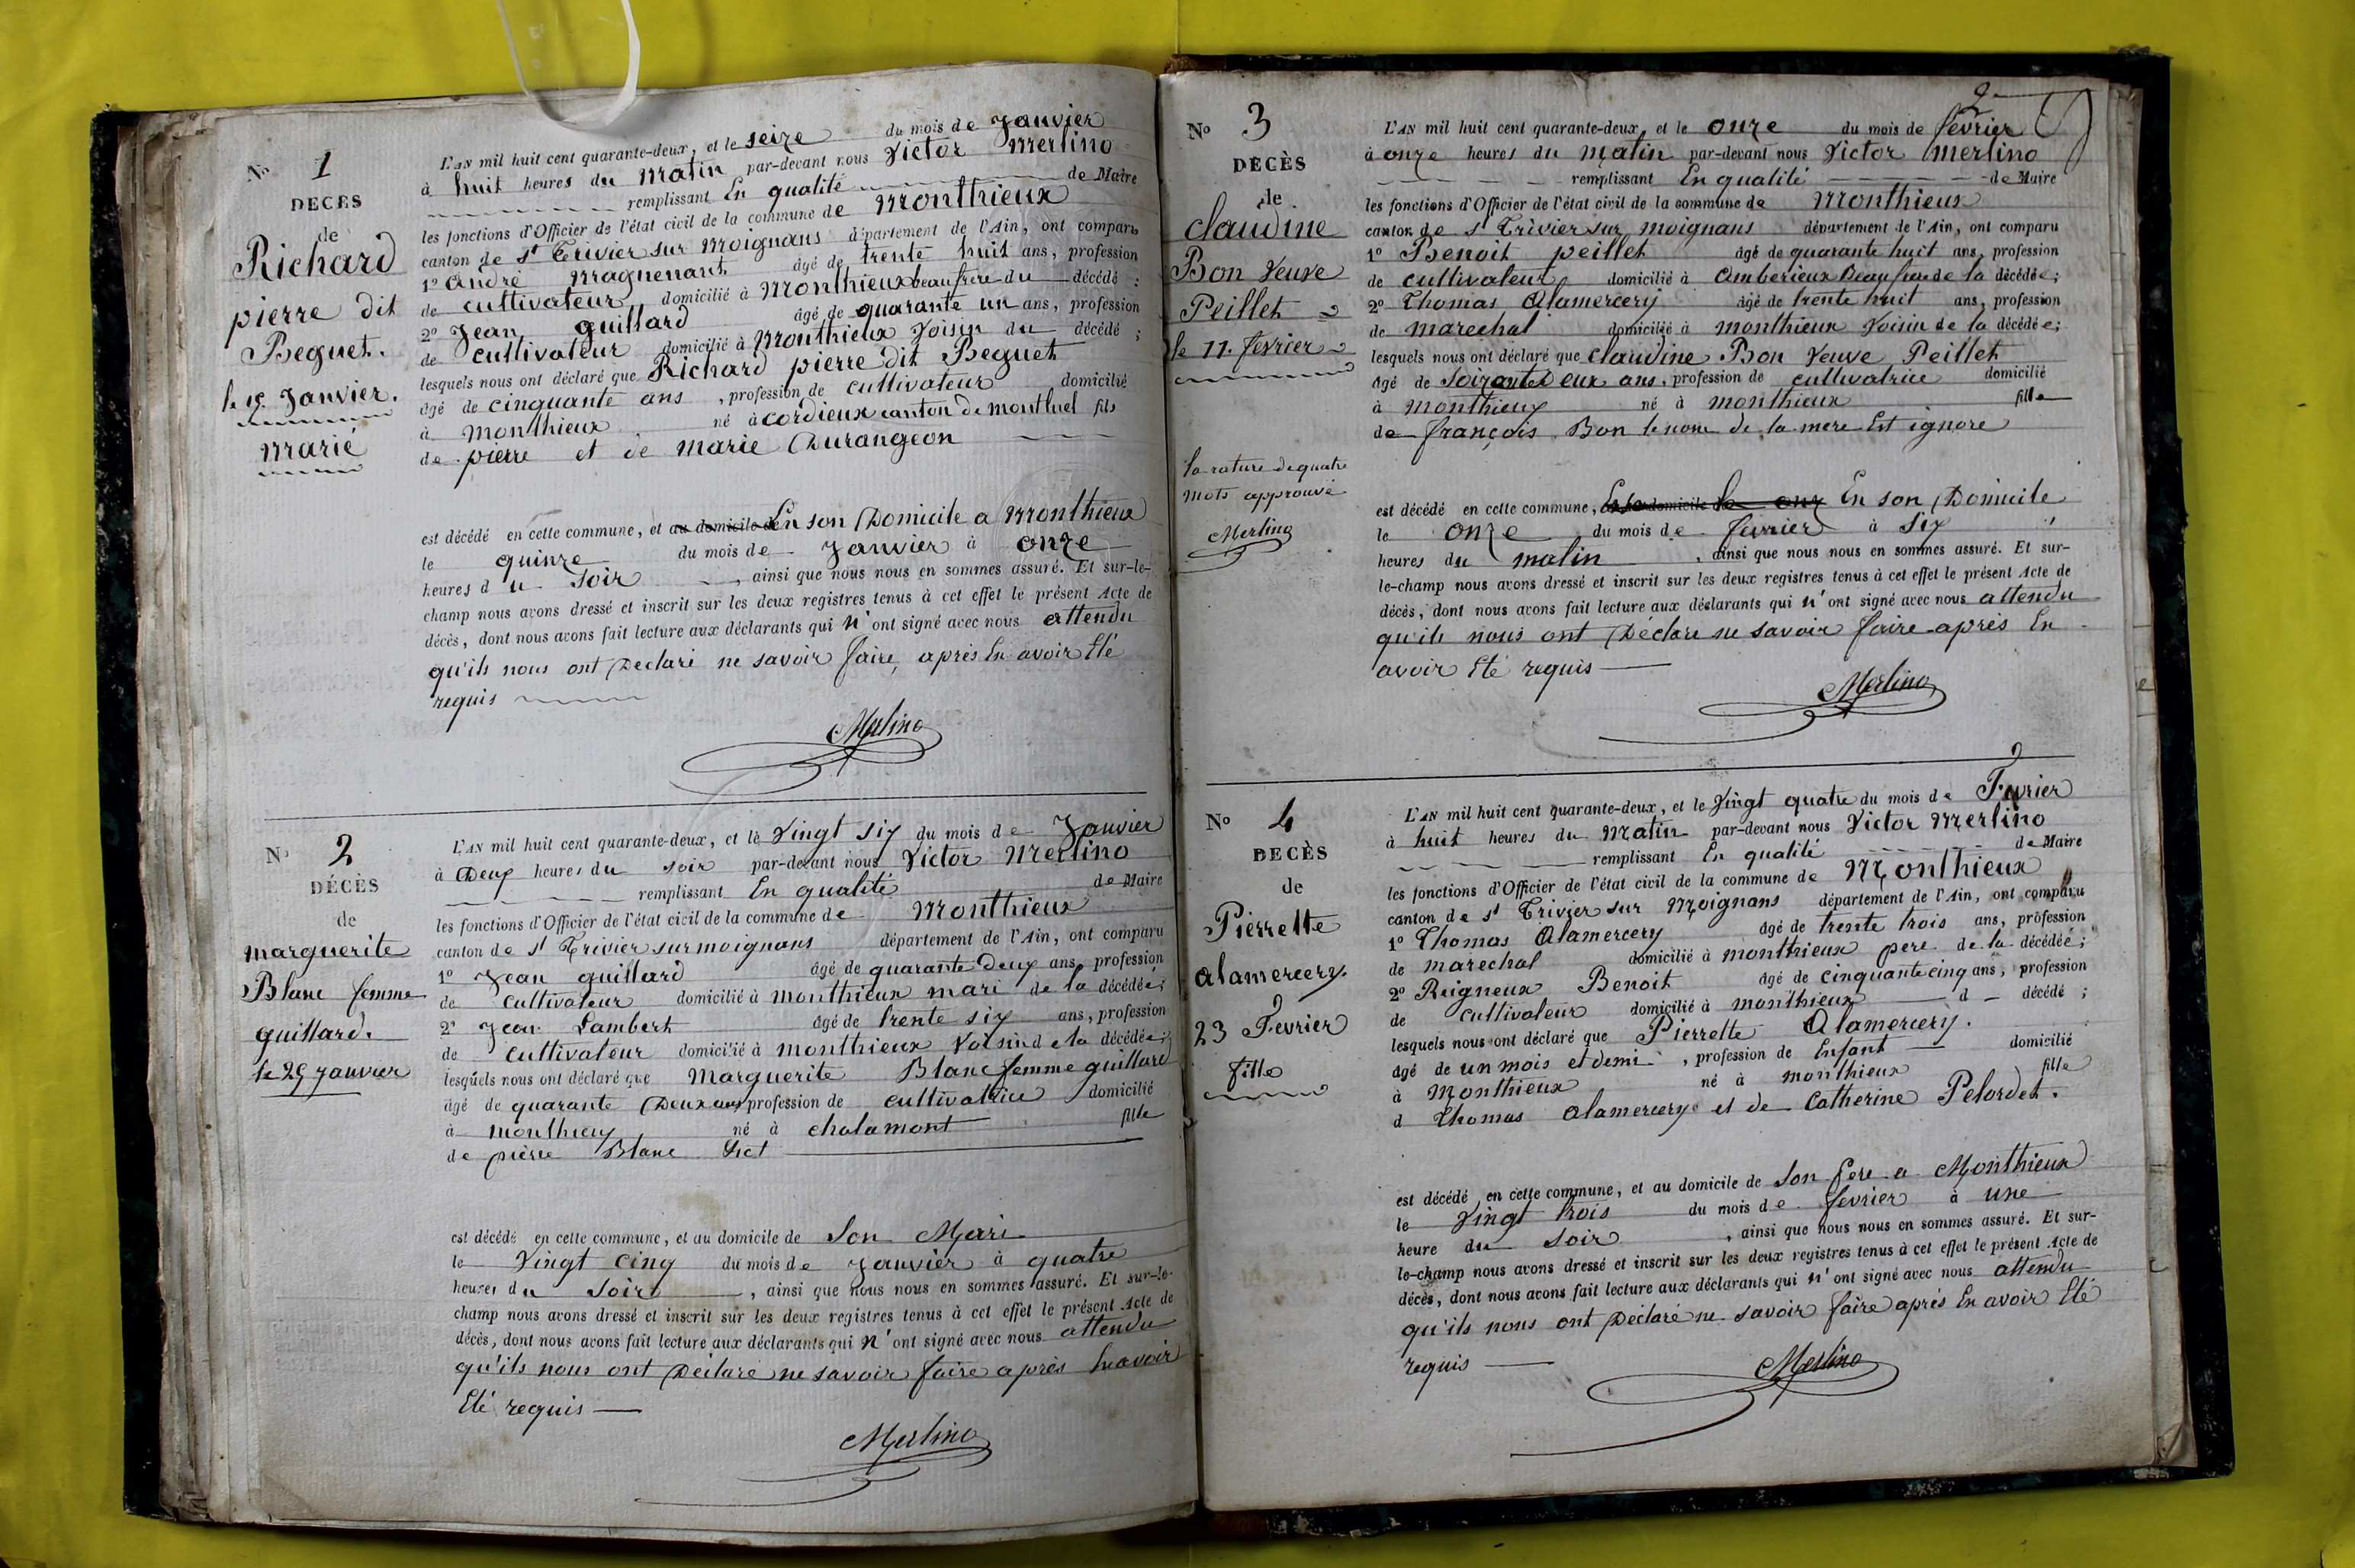 No 1
DECES
de
Richard
pierre dit
Beguet.
le 15 Janvier.
marié
L'AN mil huit cent quarante-deux, et le seize du mois de Janvier
à huit heures du matin par-devant nous Victor Merlino
remplissant En qualité de Maire
les fonctions d'Officier de l'état civil de la commune de Monthieux
canton de st Trivier sur Moignans département de l'Ain, ont comparu
1o andré Magnenant âgé de trente huit ans, profession
de cultivateur domicilié à Monthieux beaufrere du décédé ;
2o Jean guillard âgé de quarante un ans, profession
de cultivateur domicilié à Monthieux Voisin du décédé ;
lesquels nous ont déclaré que Richard pierre dit Beguet
âgé de cinquante ans, profession de cultivateur domicilié
à monthieux né à cordieux canton de montluel fils
de pierre et de marie Durangeon
est décédé en cette commune, et au domicile de En son Domicile a Monthieux
le quinze du mois de Janvier à onze
heures du soir, ainsi que nous nous en sommes assuré. Et sur-le-
champ nous avons dressé et inscrit sur les deux registres tenus à cet effet le présent Acte de
décès, dont nous avons fait lecture aux déclarants qui n'ont signé avec nous attendu
qu'ils nous ont Declaré ne savoir faire, après En avoir Eté
requis
Merlino
No 2
DÉCÈS
de
marguerite
Blanc femme
guillard.
le 25 janvier
L'AN mil huit cent quarante-deux, et le Vingt six du mois de Janvier
à Deux heures du soir par-devant nous Victor Merlino
remplissant En qualité de Maire
les fonctions d'Officier de l'état civil de la commune de Monthieux
canton de st Trivier sur moignans département de l'Ain, ont comparu
1o Jean guillard âgé de quarante Deux ans, profession
de cultivateur domicilié à monthieux mari de la décédée ;
2o Jean Lambert âgé de trente six ans, profession
de cultivateur domicilié à monthieux Voisin de la décédée ;
lesquels nous ont déclaré que Marguerite Blanc femme guillard
âgé de quarante Deux ans profession de cultivatrice domicilié
à monthieux né à chalamont fille
de pierre Blanc
est décédé en cette commune, et au domicile de Son Mari
le Vingt cinq du mois de Janvier à quatre
heures du soir, ainsi que nous nous en sommes assuré. Et sur-le-
champ nous avons dressé et inscrit sur les deux registres tenus à cet effet le présent Acte de
décès, dont nous avons fait lecture aux déclarants qui n'ont signé avec nous attendu
qu'ils nous ont Declaré ne savoir faire après En avoir
Eté requis
Merlino
2
No 3
DÉCÈS
de
claudine
Bon Veuve
Peillet
le 11. fevrier
la rature de quatre
mots approuvé
Merlino
L'AN mil huit cent quarante-deux, et le onze du mois de fevrier
à onze heures du matin par-devant nous Victor Merlino
remplissant En qualité de Maire
les fonctions d'Officier de l'état civil de la commune de Monthieux
canton de st Trivier sur moignans département de l'Ain, ont comparu
1o Benoit peillet âgé de quarante huit ans, profession
de cultivateur domicilié à Amberieux Beaufrere de la décédée ;
2o Thomas Alamercery âgé de trente huit ans, profession
de marechal domicilié à monthieux Voisin de la décédée ;
lesquels nous ont déclaré que claudine Bon Veuve Peillet
âgé de Soixante Deux ans, profession de cultivatrice domicilié
à monthieux né à monthieux fille
de françois Bon le nom de la mere Est ignoré
est décédé en cette commune, domicile le onz En son Domicile
le onze du mois de fevrier à six
heures du matin, ainsi que nous nous en sommes assuré. Et sur-
le-champ nous avons dressé et inscrit sur les deux registres tenus à cet effet le présent Acte de
décès, dont nous avons fait lecture aux déclarants qui n'ont signé avec nous attendu
qu'ils nous ont Déclaré ne savoir faire après En
avoir Eté requis
Merlino
No 4
DÉCÈS
de
Pierrette
alamercery.
23 Fevrier
fille
L'AN mil huit cent quarante-deux, et le Vingt quatre du mois de Fevrier
à huit heures du Matin par-devant nous Victor Merlino
remplissant En qualité de Maire
les fonctions d'Officier de l'état civil de la commune de Monthieux
canton de st Trivier sur Moignans département de l'Ain, ont comparu
1o Thomas Alamercery âgé de trente trois ans, profession
de marechal domicilié à monthieux pere de la décédée ;
2o Reigneux Benoit âgé de cinquante cinq ans, profession
de cultivateur domicilié à monthieux d décédé ;
lesquels nous ont déclaré que Pierrette Alamercery.
âgé de un mois et demi, profession de Enfant domicilié
à Monthieux né à monthieux fille
d Thomas alamercery et de Catherine Pelordet.
est décédé en cette commune, et au domicile de Son Pere a Monthieux
le Vingt trois du mois de fevrier à une
heure du soir, ainsi que nous nous en sommes assuré. Et sur-
le-champ nous avons dressé et inscrit sur les deux registres tenus à cet effet le présent Acte de
décès, dont nous avons fait lecture aux déclarants qui n'ont signé avec nous attendu
qu'ils nous ont Déclaré ne savoir faire après En avoir Eté
requis
Merlino